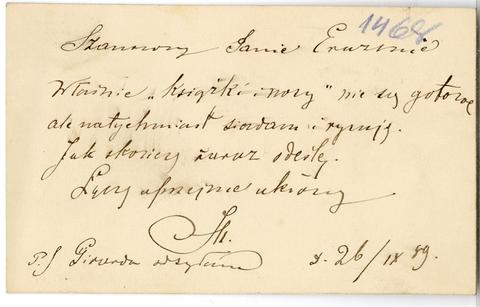 1468
Szanowny Panie Erazmie
Właśnie „książki i nory" nie są gotowe
ale natychmiast siadam i rysuję.
Jak skończę zaraz odeślę.
Łączę uprzejme ukłony
P.S Girarda odsyłam d. 26/IX 89.